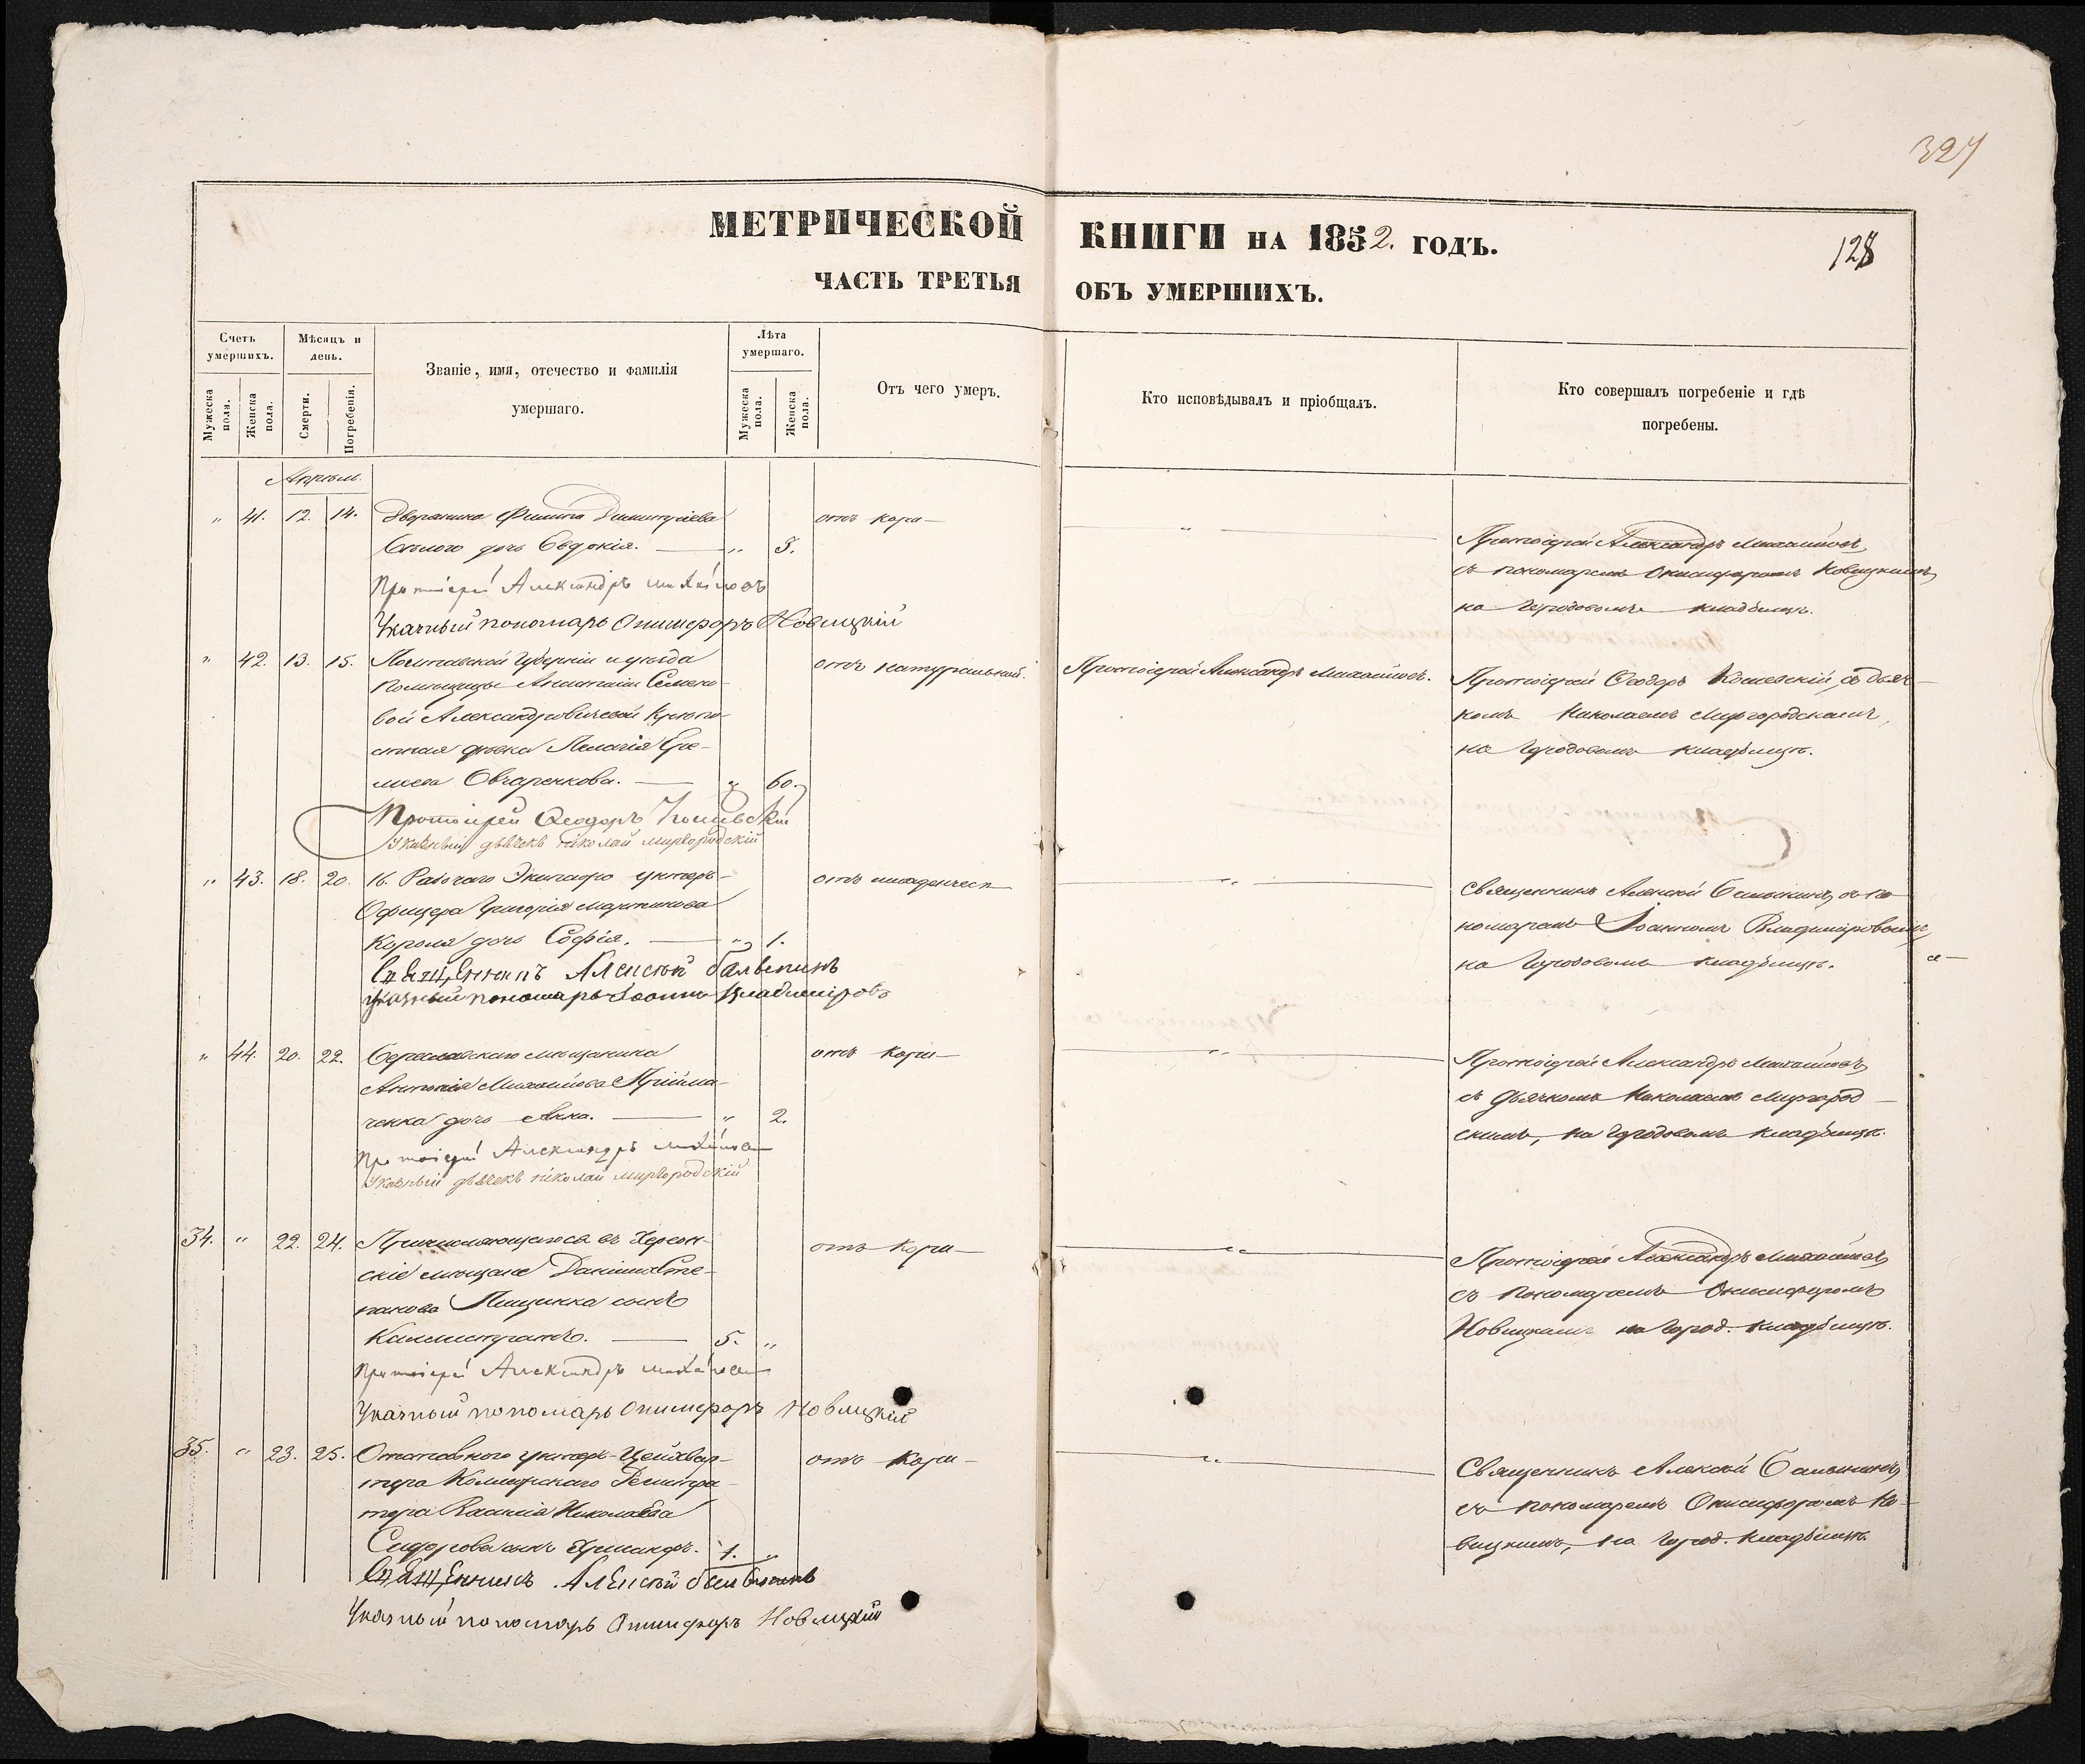 327
МЕТРИЧЕСКОЙ КНИГИ НА 1852. ГОДЪ.
128
ЧАСТЬ ТРЕТЬЯ ОБЪ УМЕРШИХЪ.
Счетъ умершихъ.
Мужеска пола.
Женска пола.
Мѣсяцъ и день.
Смерти.
Погребенія.
Званіе, имя, отечество и фамилія умершаго.
Лѣта умершаго.
Мужеска пола.
Женска пола.
Отъ чего умеръ.
Кто исповѣдывалъ и пріобщалъ.
Кто совершалъ погребеніе и гдѣ погребены.
Апрѣль.
" 41. 12. 14. Дворянина Филипа Димитріева
дочь Евдокія. — " 3.
отъ кори —
"
Протоіерей Александръ Михайловъ,
съ пономаремъ Онисифоромъ Новицкимъ,
на Городовомъ кладбищѣ.
Протоіерей Александръ Михайловъ
Указный пономарь Онисифоръ Новицкій
" 42. 13. 15. Полтавской Губерніи и уѣзда
помѣщицы Анастасіи Семено-
вой Александровичевой крѣпо-
стная дѣвка Пелагія Ере-
мѣева Овчаренкова. — " 60.
отъ натуральной.
Протоіерей Александръ Михайловъ.
Протоіерей Ѳеодоръ Кошевскій, съ дьяч-
комъ Николаемъ Миргородскимъ,
на Городовомъ кладбищѣ.
Протоіерей Ѳеодоръ Кошевскій
Указный дьячекъ Николай Миргородскій
" 43. 18. 20. 16. Рабочаго Экипажа унтеръ-
Офицера Григорія Мартинова
Короля дочь Софія. — " 1.
отъ младенческ
"
Священникъ Алексѣй Бальвинъ, съ по-
номаремъ Іоанномъ Владиміровымъ,
на Городовомъ кладбищѣ.
Священникъ Алексѣй
Указный пономарь Іоаннъ Владиміровъ
" 44. 20. 22. Бериславскаго мѣщанина
Антонія Михайлова Прійма-
ченка дочь Анна. — " 2.
отъ кори —
"
Протоіерей Александръ Михайловъ,
съ дьячкомъ Николаемъ Миргород-
скимъ, на Городовомъ кладбищѣ.
Протоіерей Александръ Михайловъ
Указный дьячекъ Николай Миргородскій
34. " 22. 24. Причисляющагося въ Херсон-
скіе мѣщане Даніила Сте-
панова Пищенка сынъ
Каллистратъ. — 5. "
отъ кори —
"
Протоіерей Александръ Михайловъ,
съ пономаремъ Онисифоромъ
Новицкимъ на Город. кладбищѣ.
Протоіерей Александръ Михайловъ
Указный пономарь Онисифоръ Новицкій
35. " 23. 25. Отставного унтеръ-Цейхвах-
тера Коллежскаго Регистра-
тора Василія Николаева
Сидорова сынъ 1. "
отъ кори —
"
Священникъ Алексѣй
съ пономаремъ Онисифоромъ Но-
вицкимъ, на Город. кладбищѣ.
Священникъ Алексѣй
Указный пономарь Онисифоръ Новицкій